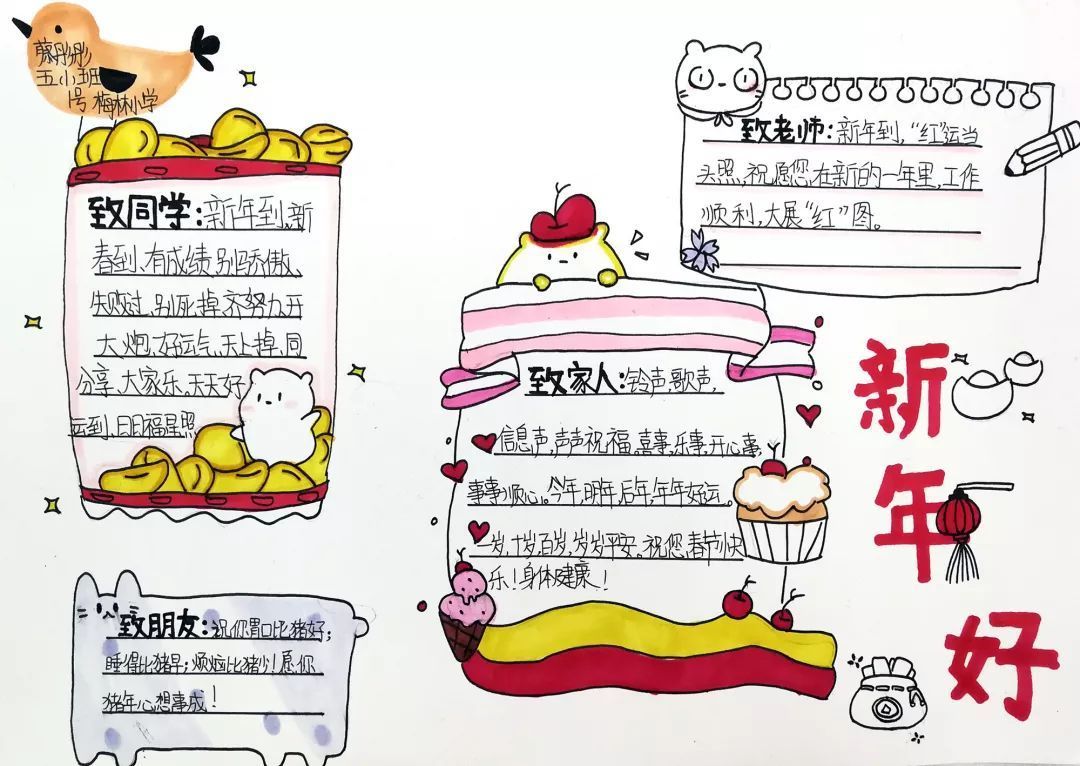 蔡彤彤
五小五班
1号 梅林小学
致同学:新年到、新
春到、有成绩、别骄傲、
失败过、别死掉、齐努力、开
大炮、好运气、天上掉、同
分享、大家乐、天天好
运到、日日福星照
致朋友:祝你胃口比猪好;
睡得比猪早;烦恼比猪少!愿你
猪年心想事成!
致家人:铃声,歌声,
信息声,声声祝福。喜事,乐事,开心事,
事事顺心。今年,明年,后年,年年好运。
一岁,十岁,百岁,岁岁平安。祝您,春节快
乐!身体健康!
致老师:新年到,“红”运当
头照,祝愿您,在新的一年里,工作
顺利,大展“红”图。
新
年
好